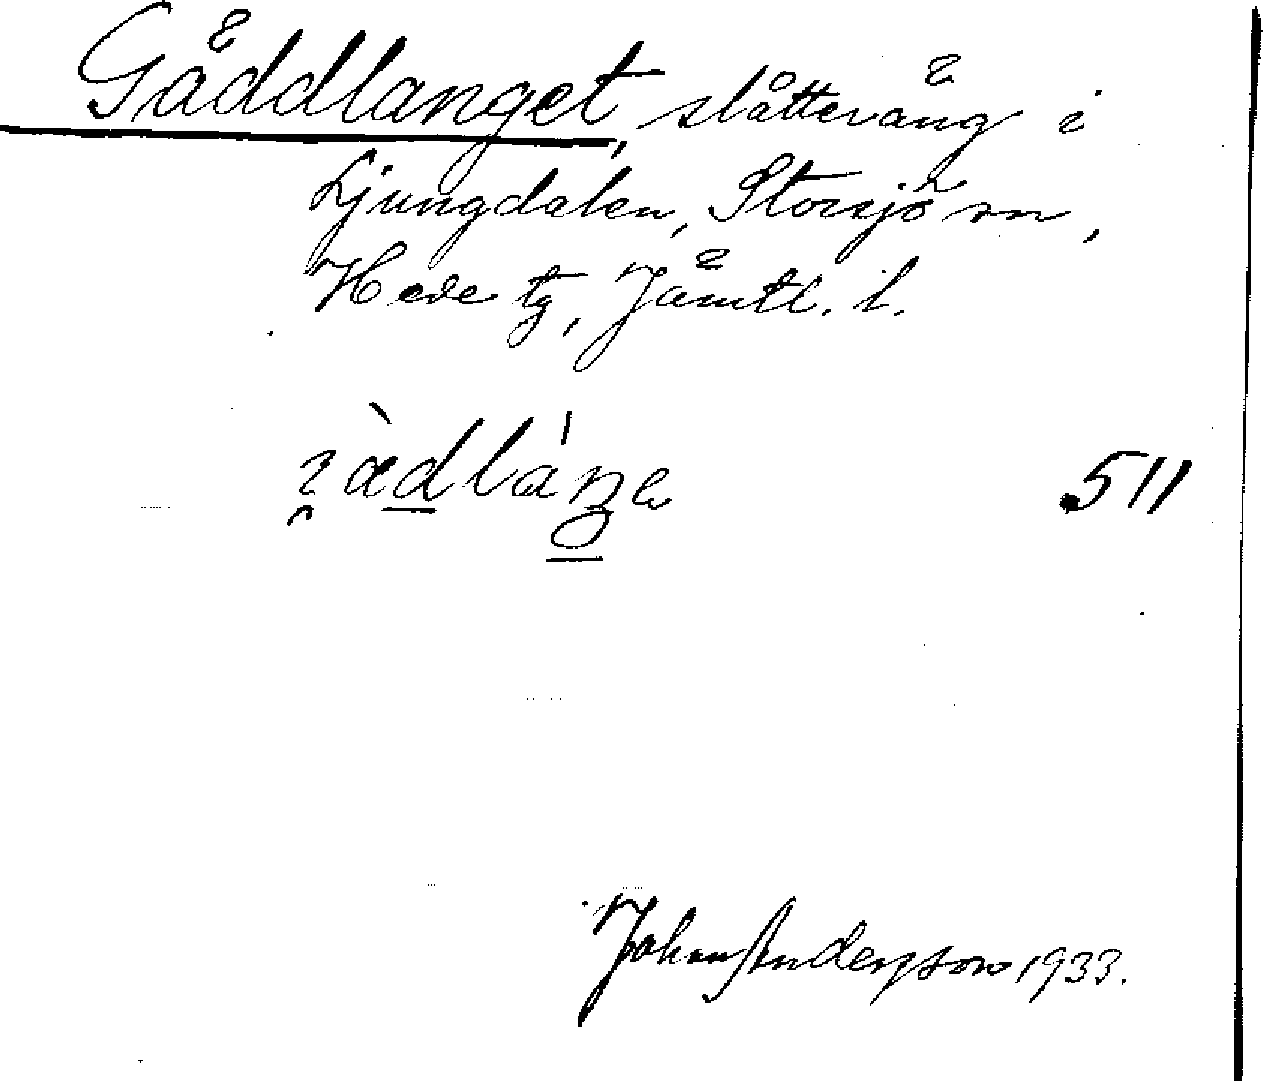 Gäddlanget, slåtteräng i
Ljungdalen, Storsjö sn,
Hede tg, Jämtl. l.
511
John Andersson 1933.